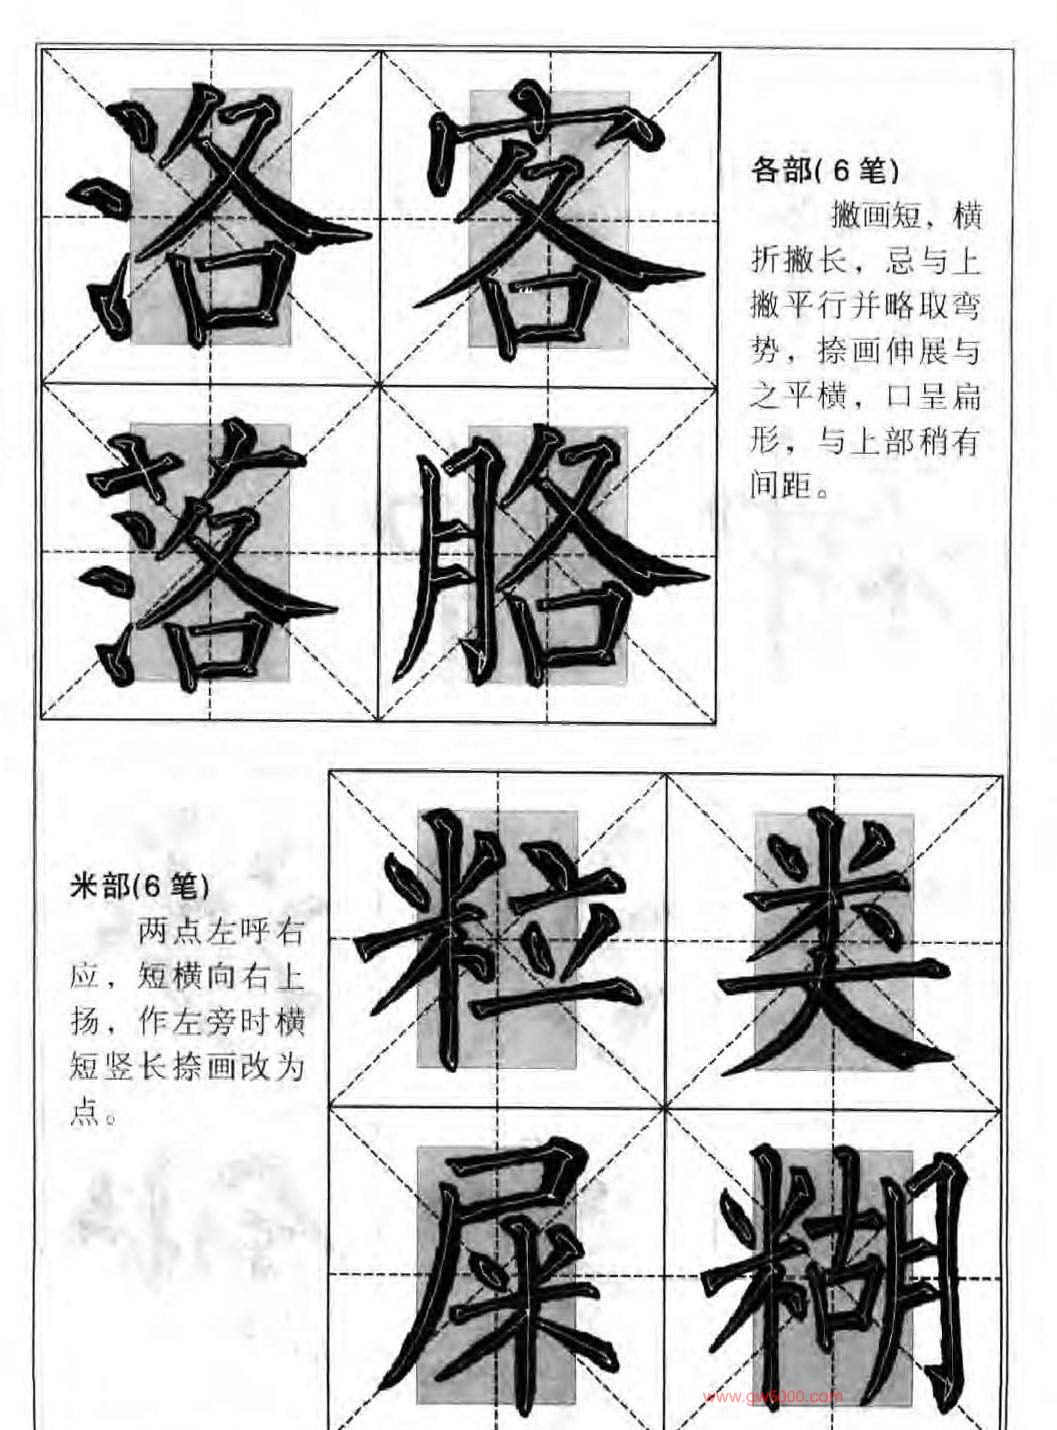 洛客
各部(6笔)
撇画短，横
折撇长，忌与上
撇平行并略取弯
势，捺画伸展与
之平横，口呈扁
形，与上部稍有
间距。
落胳
米部(6笔)
两点左呼右
应，短横向右上
扬，作左旁时横
短竖长捺画改为
点。
粒类
屎糊
www.gw5000.com